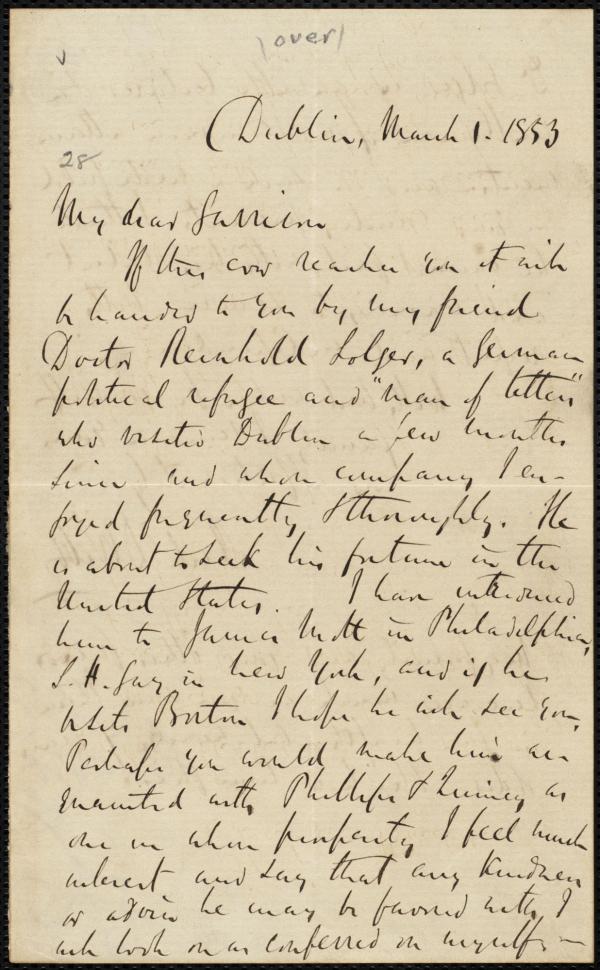 (over)
v
Dublin, March 1. 1853
28
My dear Garrison
If this ever reaches you it will
be handed to you by my friend
Doctor Reinhold Solger, a German
political refugee and "man of letters"
who visited Dublin a few months
since and whose company I en-
joyed frequently & thoroughly. He
is about to seek his fortune in the
United States. I have introduced
him to James Mott in Philadelphia,
S. H. Gay in New York, and if he
visits Boston I hope he will see you.
Perhaps you would make him ac-
quainted with Phillips & Quincy as
one in whose prosperity I feel much
interest and say that any kindness
or advice he may be favored with, I
will look on as conferred on myself—